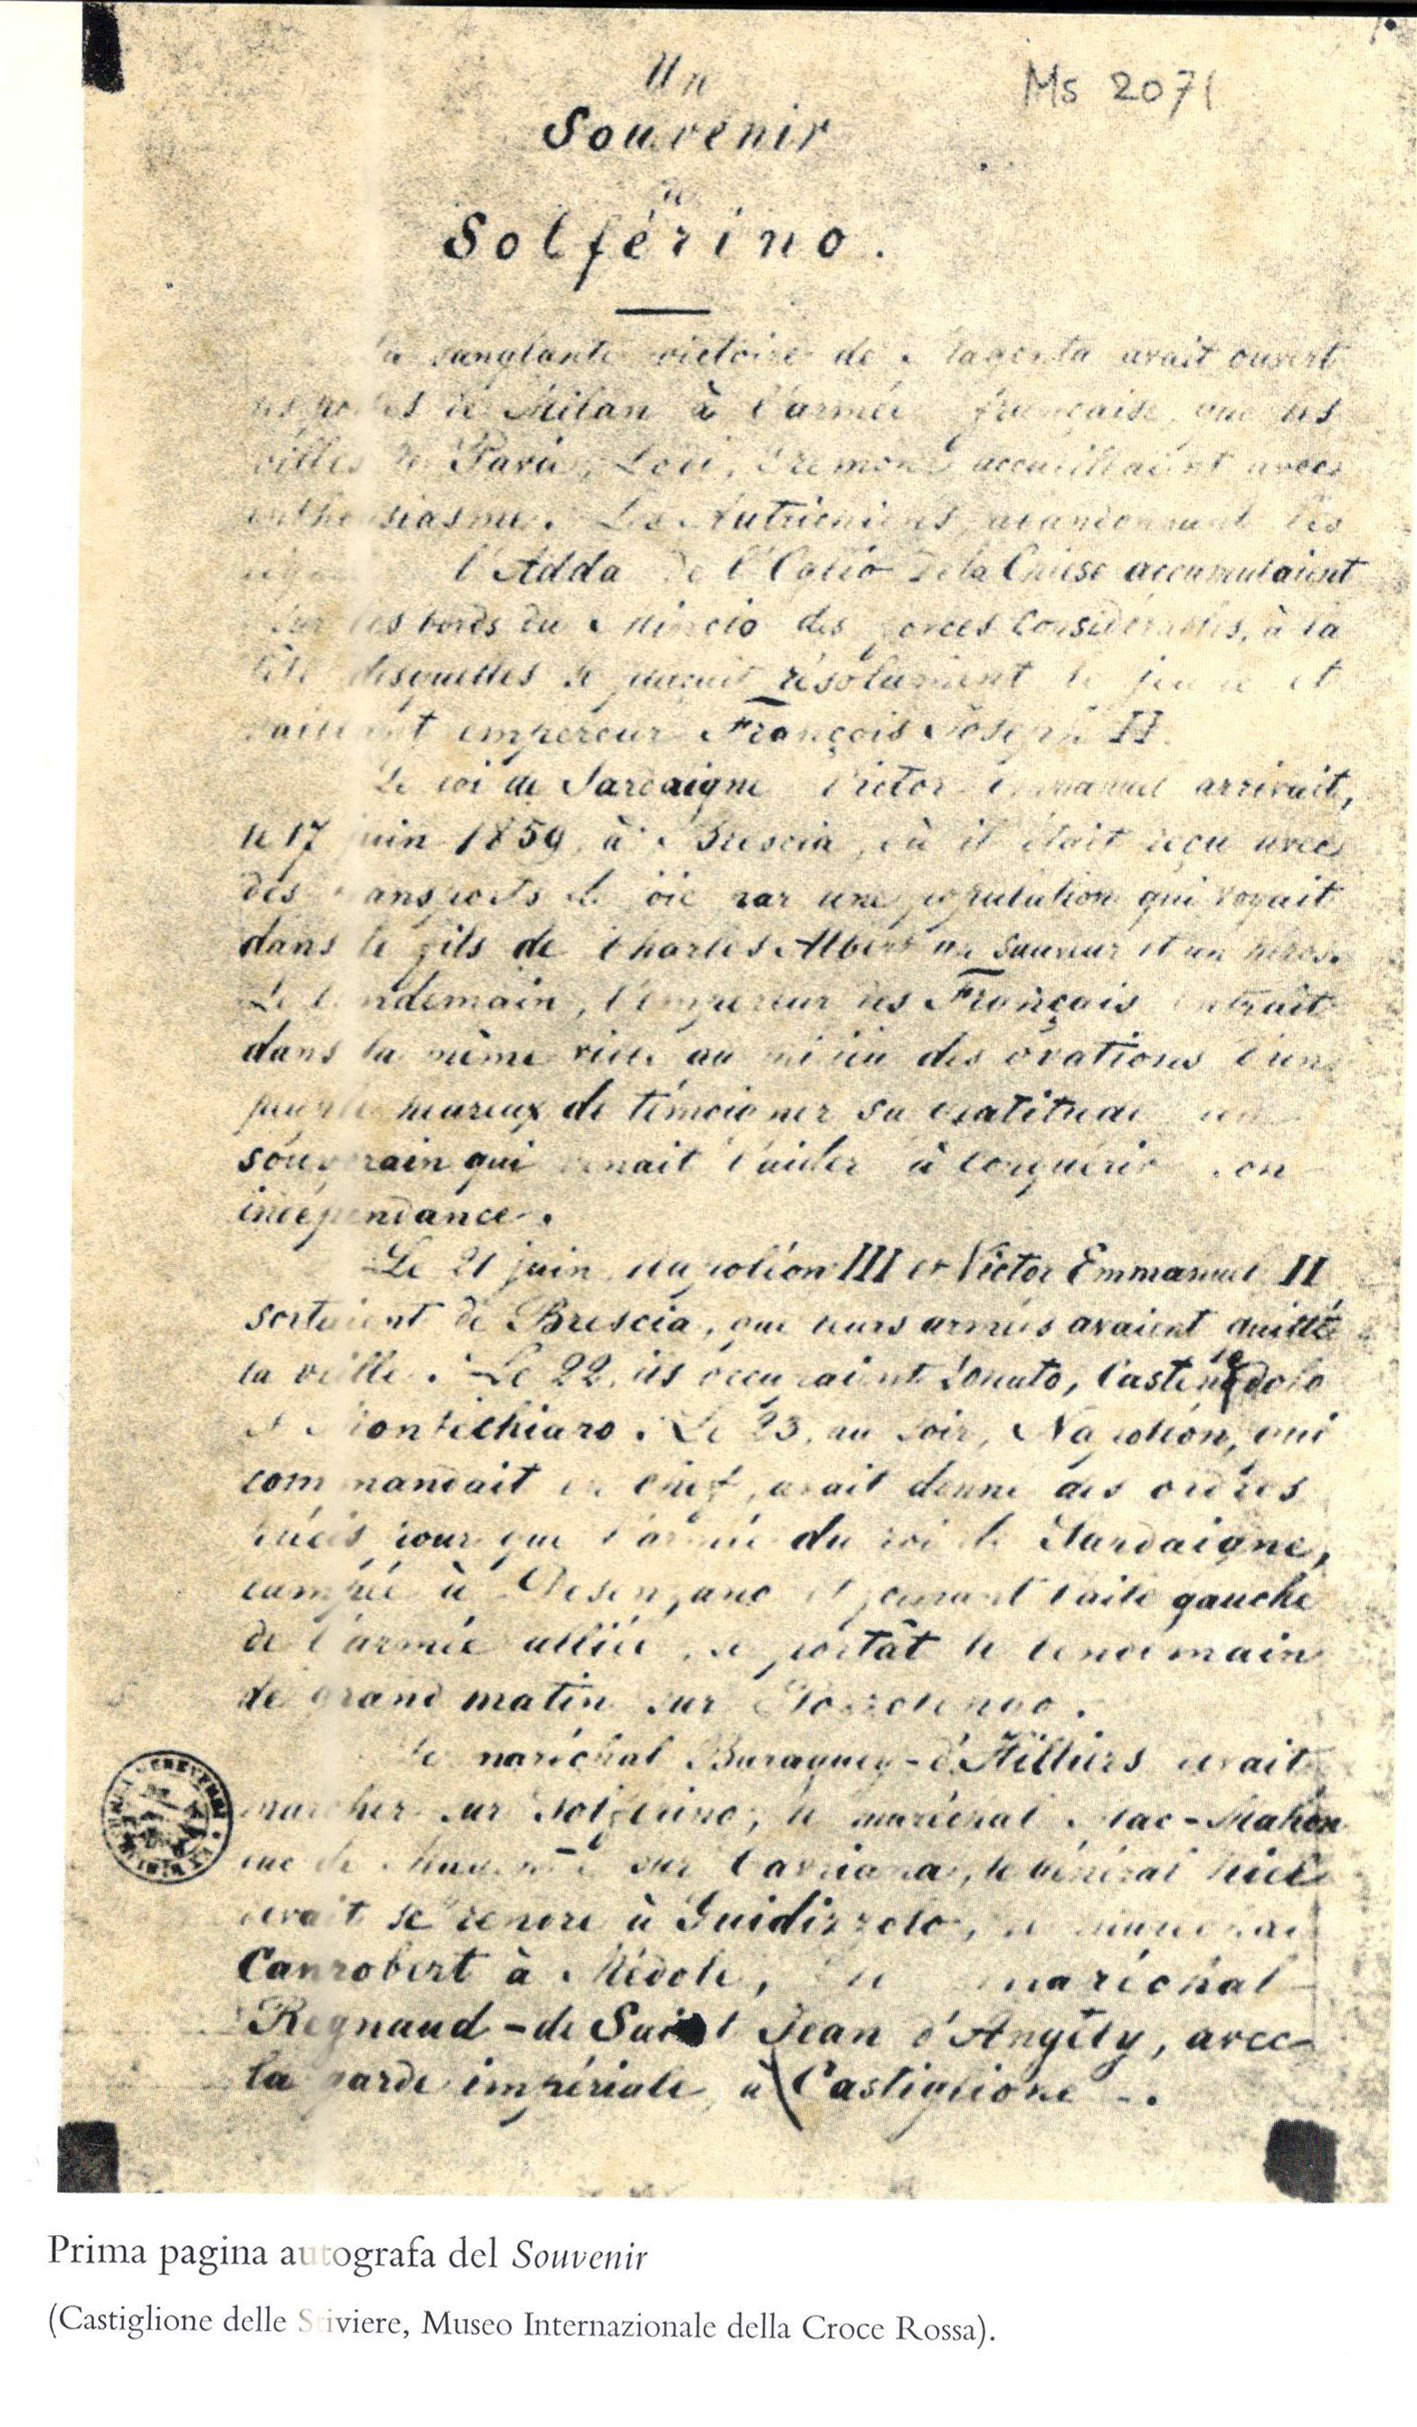 Un
Ms 2071
Souvenir
de
Solférino.
La sanglante victoire de Magenta avait ouvert
les portes de Milan à l'armée française, que les
villes de Pavie, Lodi, Crémone accueillaient avec
enthousiasme. Les Autrichiens abandonnant les
lignes l'Adda de l'Oglio de la Chiese accumulaient
sur les bords du Mincio des forces considérables, à la
tête desquelles se résolument le jeune et
vaillant empereur François Joseph II.
Le roi de Sardaigne Victor Emmanuel arrivait,
le 17 juin 1859, à Brescia, où il était reçu avec
des transports de joie par une population qui voyait
dans le fils de Charles Albert un sauveur et un héros.
Le lendemain, l'empereur des Français entrait
dans la même ville au milieu des ovations d'un
peuple heureux de témoigner sa gratitude un
souverain qui venait l'aider à conquérir son
indépendance.
Le 21 juin, Napoléon III et Victor Emmanuel II
sortaient de Brescia, que leurs armées avaient quitté
la veille. Le 22, ils occupaient Lonato,
et Montechiaro. Le 23, au soir, Napoléon, qui
commandait en chef, avait donné des ordres
précis pour que l'armée du roi de Sardaigne,
campée à Desenzano et formant l'aile gauche
de l'armée alliée, se portât le lendemain
de grand matin sur Pozzolengo.
Le maréchal Baraguey-d'Hilliers devait
marcher sur Solferino, le maréchal Mac-Mahon
duc de Magenta sur Cavriana, le général Niel
devait se rendre à Guidizzolo, le maréchal
Canrobert à Médole, le maréchal
Regnaud-de Saint Jean d'Angély, avec
la garde impériale, à Castiglione.
Prima pagina autografa del Souvenir
(Castiglione delle Stiviere, Museo Internazionale della Croce Rossa).